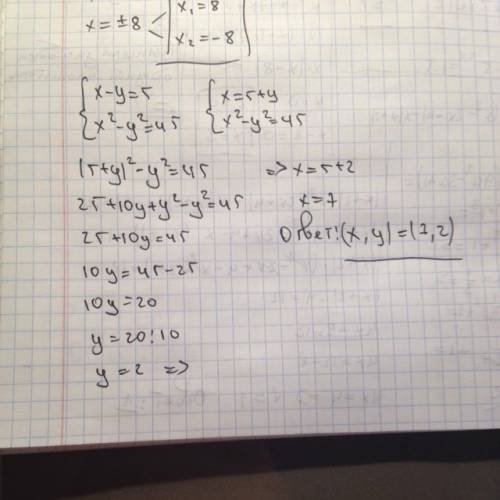 x = ±8 < x₁ = 8
x₂ = -8
{ x-y=5 { x=5+y
{ x²-y²=45 { x²-y²=45
(5+y)²-y²=45 => x=5+2
25+10y+y²-y²=45 x=7
25+10y=45 Ответ: (x, y) = (7, 2)
10y=45-25
10y=20
y=20:10
y=2 =>